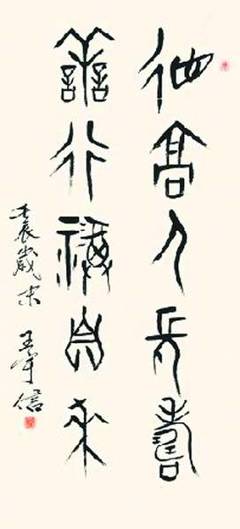 德高人長壽
善行福自來
壬辰歲末 王宇信